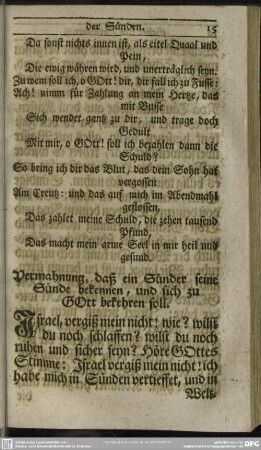 der Sünden. 15
Da sonst nichts innen ist, als eitel Quaal und
Pein,
Die ewig währen wird, und unerträglich seyn.
Zu wem soll ich, o GOtt! dir, dir fall ich zu Fusse:
Ach! nimm für Zahlung an mein Hertze, das
mit Busse
Sich wendet gantz zu dir, und trage doch
Gedult
Mit mir, o GOtt! soll ich bezahlen dann die
Schuld?
So bring ich dir das Blut, das dein Sohn hat
vergossen
Am Creutz: und das auf mich im Abendmahl
geflossen,
Das zahlet meine Schuld, die zehen tausend
Pfund,
Das macht mein arme Seel in mir heil und
gesund.
Vermahnung, daß ein Sünder seine
Sünde bekennen, und sich zu
GOtt bekehren soll.
Israel, vergiß mein nicht! wie? wilst
du noch schlaffen? wilst du noch
ruhen und sicher seyn? Höre GOttes
Stimme: Israel vergiß mein nicht! ich
habe mich in Sünden vertieffet, und in
Welt-
DFG